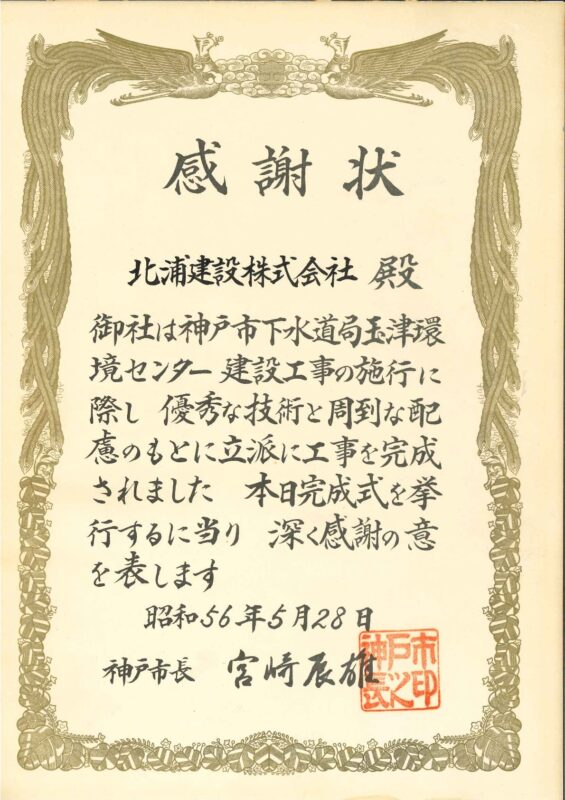 感謝状
北浦建設株式会社 殿
御社は神戸市下水道局玉津環
境センター 建設工事の施行に
際し 優秀な技術と周到な配
慮のもとに立派に工事を完成
されました 本日完成式を挙
行するに当り 深く感謝の意
を表します
昭和56年5月28日
神戸市長 宮崎辰雄
神戸市長之印